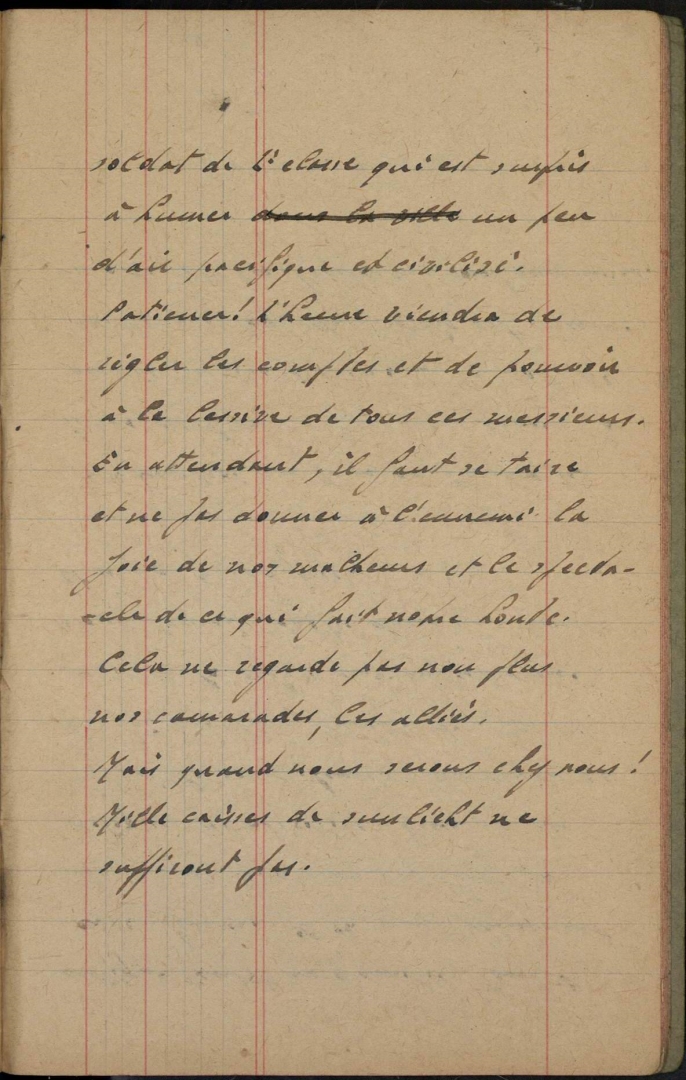 soldat de 2è classe qui est surpris
à humer dans la ville un peu
d'air pacifique et civilisé.
Patience! L'heure viendra de
régler les comptes et de pouvoir
à la lessive de tous ces messieurs.
En attendant, il faut se taire
et ne pas donner à l'ennemi la
joie de nos malheurs et le specta-
-cle de ce qui fait notre honte.
Cela ne regarde pas non plus
nos camarades, les alliés.
Mais quand nous serons chez nous!
Mille caisses de sunlicht ne
suffiront pas.